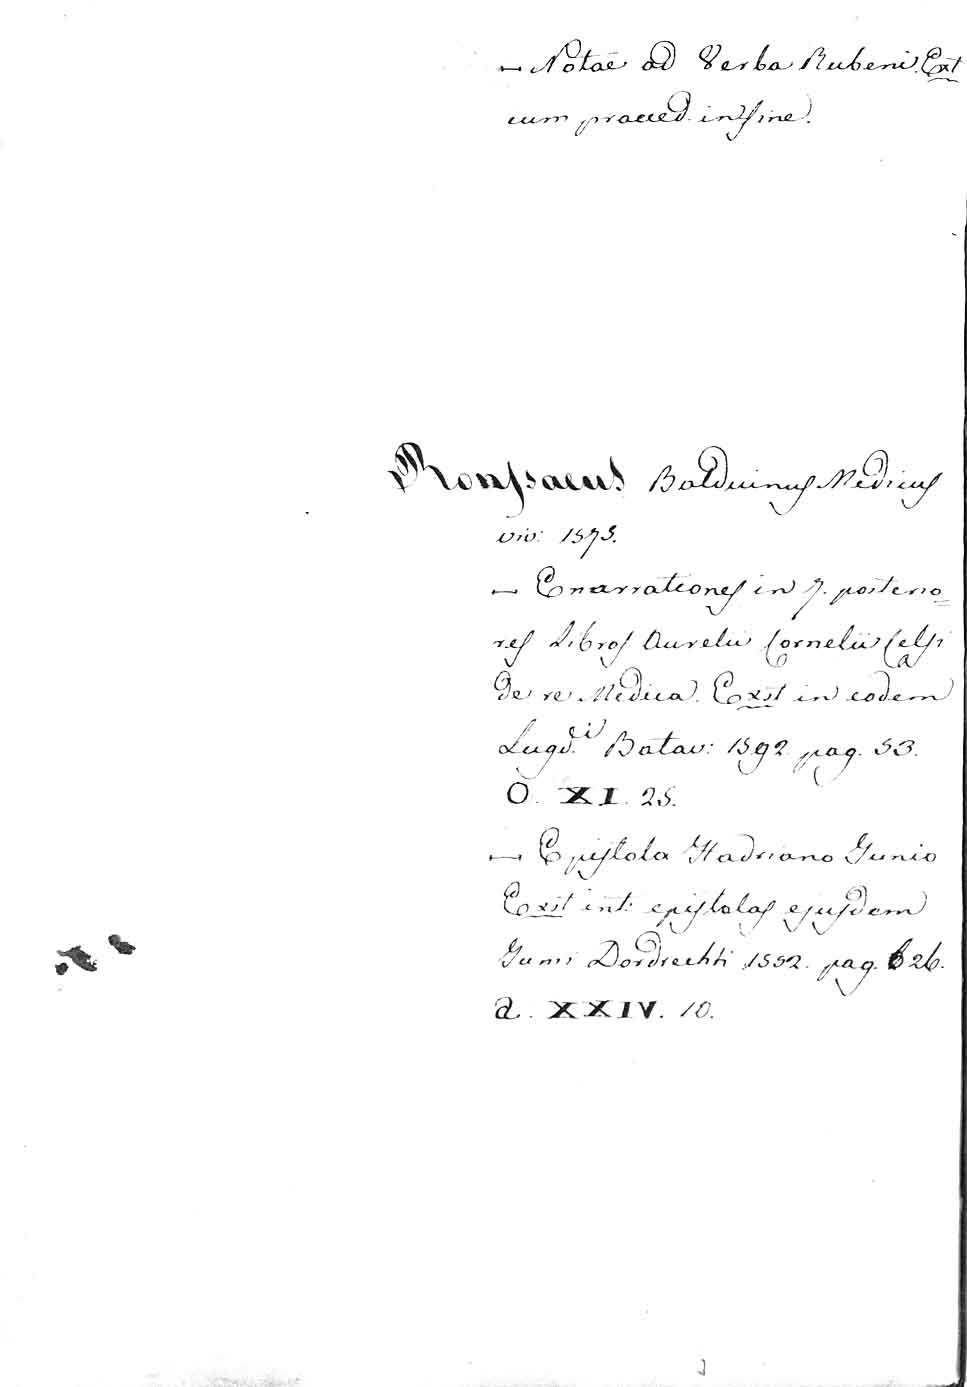 — Notae ad Verba Rubeni. Ext
cum praeced. in fine.
Ronssaeus Balduinus Medicus
viv: 1575.
— Enarrationes in 7. posterio=
res Libros Aurelii Cornelii Celsi
de re Medica. Exst in eodem
Lugd.i Batav: 1592. pag. 53.
O. XI. 25.
— Epistola Hadriano Junio
Exst int: epistolas ejusdem
Junii Dordrechti 1552. pag. 626.
a. XXIV. 10.